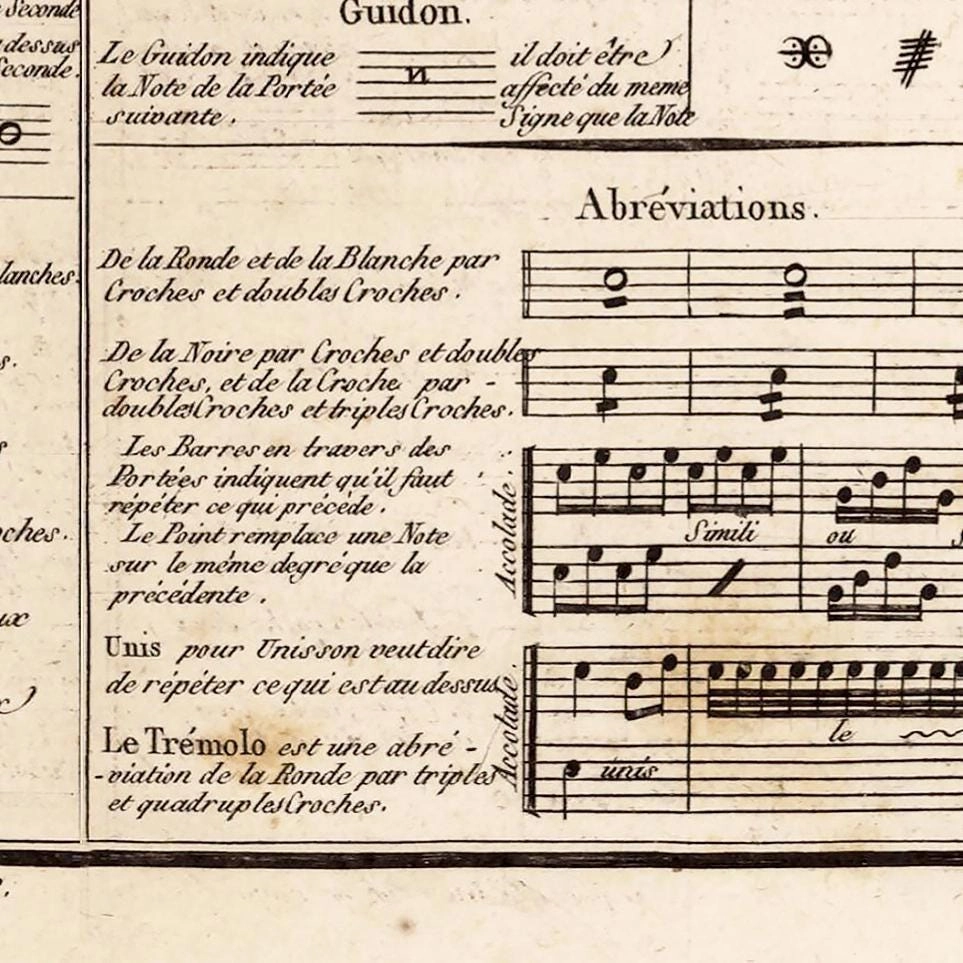 Seconde
dessus
econde.
lanches.
s.
s
oches.
ux
Guidon.
Le Guidon indique
la Note de la Portée
suivante.
il doit être
affecté du meme
Signe que la Note
Abréviations.
De la Ronde et de la Blanche par
Croches et doubles Croches.
De la Noire par Croches et doubles
Croches, et de la Croche par -
doubles Croches et triples Croches.
Les Barres en travers des
Portées indiquent qu'il faut
répéter ce qui précéde.
Le Point remplace une Note
sur le même degré que la
précédente.
Accolade.
Simili
ou
s
Unis pour Unisson veut dire
de répéter ce qui est au dessus.
Le Trémolo est une abré -
-viation de la Ronde par triples
et quadruples Croches.
Accolade.
le
unis